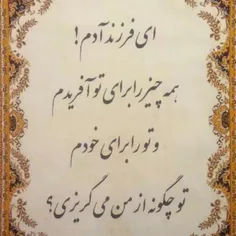 ای فرزند آدم!
همه چیز را برای تو آفریدم
و تو را برای خودم
تو چگونه از من می گریزی؟